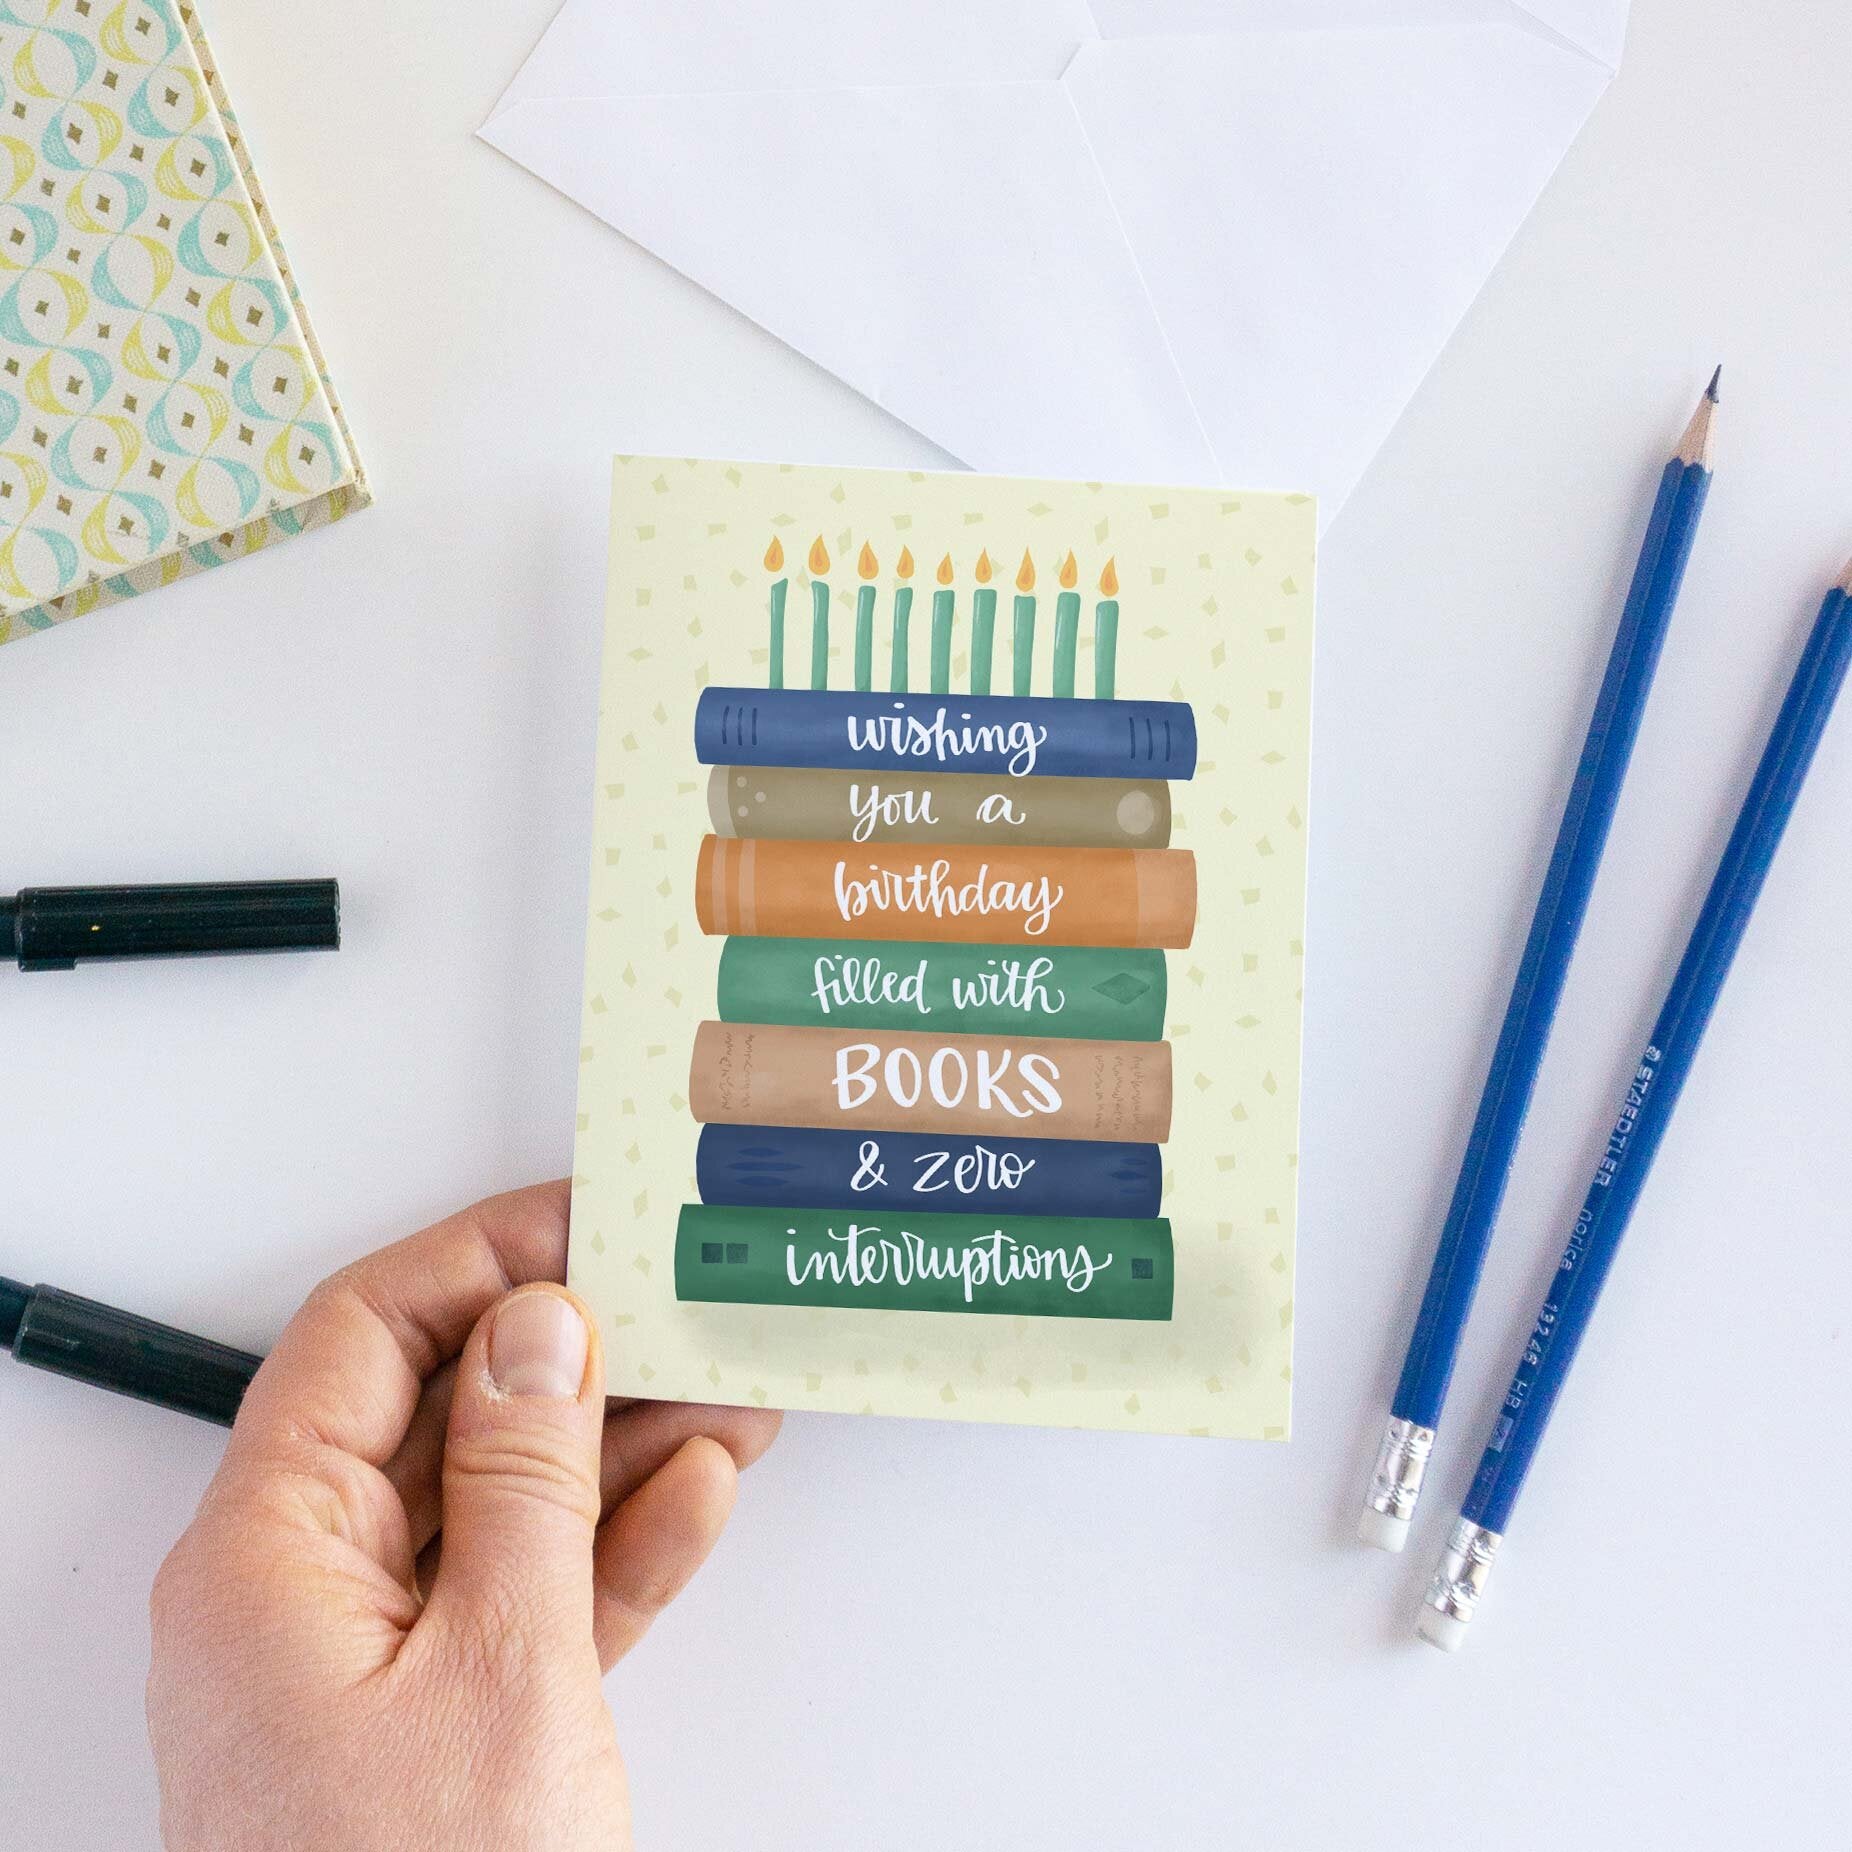 wishing
you a
birthday
filled with
BOOKS
& zero
interruptions
STAEDTLER norica 132 46 HB